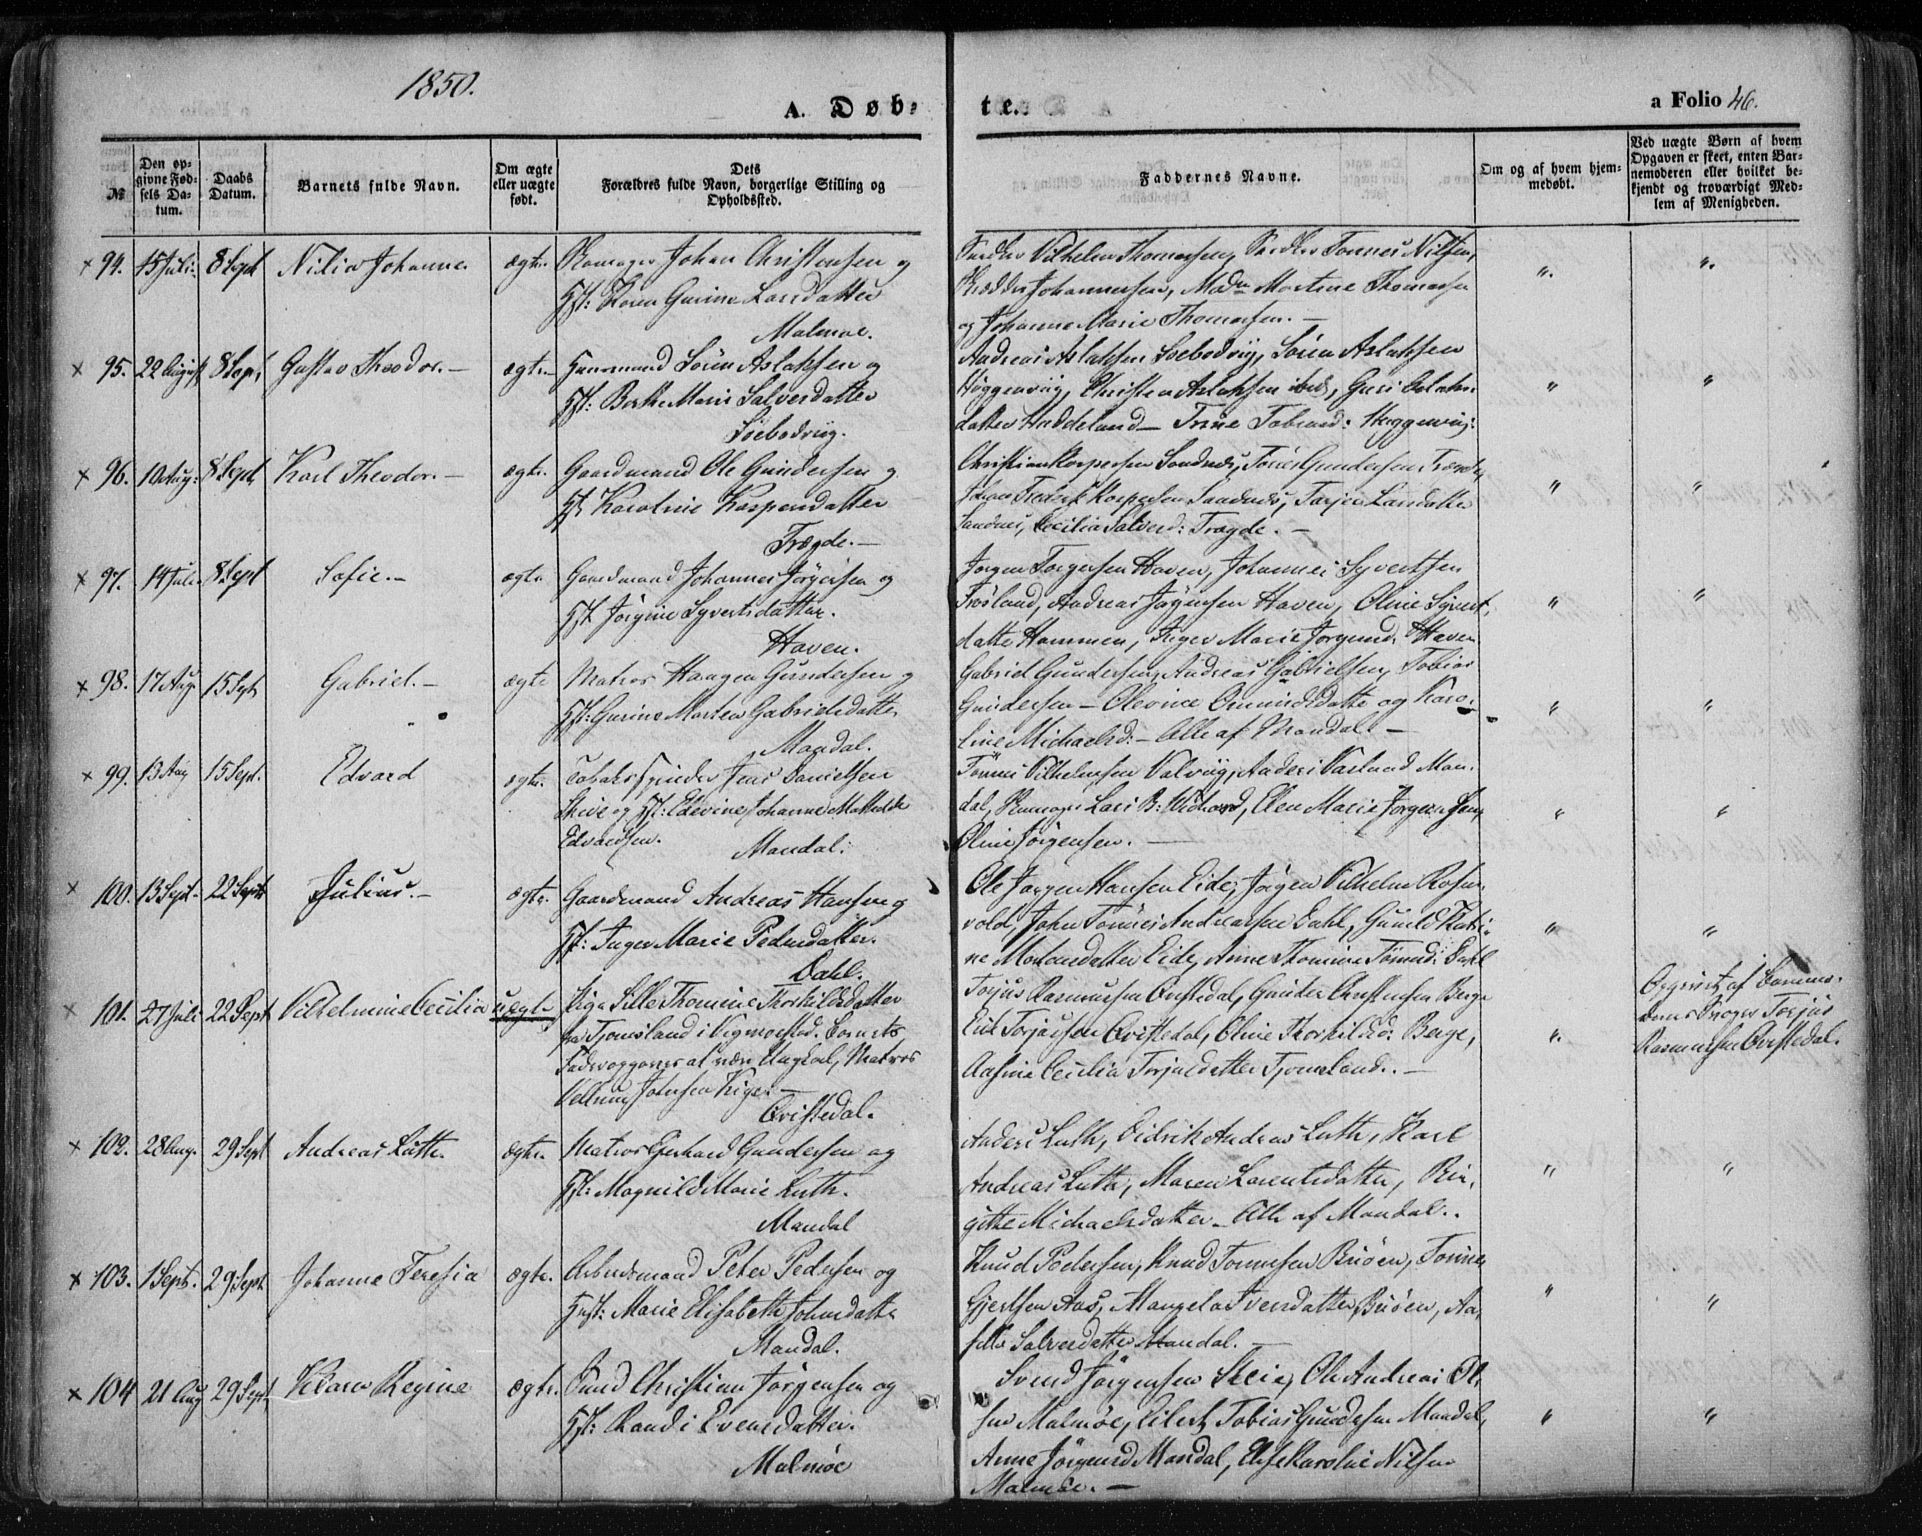 1850.
A. Døb-
te.
a Folio 46.
№
Den op-
givne Fød-
sels Da-
tum.
Daabs
Datum.
Barnets fulde Navn.
Om ægte
eller uægte
født.
Dets
Forældres fulde Navn, borgerlige Stilling og
Opholdssted.
Faddernes Navne.
Om og af hvem hjem-
medøbt.
Ved uægte Børn af hvem
Opgaven er skeet, enten Bar-
nemoderen eller hvilket be-
kjendt og troværdigt Med-
lem af Menigheden.
94. 15 Juli 8 Sept Johanne ægte Skomager Johan Christensen og
Hst: Karen Gurine Larsdatter
Malmøe.
Vilhelm Thomassen, Tønnes Nilsen,
Johannessen, Madm Martine Thomassen
og Johanne Marie Thomassen. —
" "
95. 22 August 8 Sept Gustav Theodor. — ægte Gaardmand Sören Aslaksen og
Hst: Berthe Marie Salvesdatter
Andreas Aslaksen Søren Aslaksen
Christen Aslaksen ibid, Guri Aslaks
datter Haddeland — Trine Tobiasd:
" "
96. 10 Aug. 8 Sept Karl Theodor. — ægte Gaardmand Ole Gundersen og
Hst Karoline Kaspersdatter
Trægde. —
Christian Kaspersen Sandnes, Tönes Gundersen Trægde,
Fredrik Kaspersen Sandnes, Tarjer Larsdatter
Sandnes, Cecilia Salvesd: Trægde. —
" "
97. 14 Juli 8 Sept Sofie. — ægte Gaardmand Johannes Jörgensen og
Hst Jörgine Syvertsdatter.
Haven.
Jørgen Torgersen Haven, Johannes Syvertsen
Andreas Jørgensen Haven, Oline Syverts
datter Hammen, Inger Marie Jørgensd. Haven
" "
98. 17 Aug. 15 Sept Gabriel. — ægte Matros Haagen Gundersen og
Hst: Gurine Marten Gabrielsdatter
Mandal.
Gabriel Gundersen, Andreas Gabrielsen, Tobias
Gundersen — Olevine Omundsdatter og Karo-
line Michaelsd: — Alle af Mandal —
" "
99. 13 Aug 15 Sept. Edvard ægte. Tobaksspinder Jens Danielsen
og Hst: Edevine Johanne Mathilde
Edvardsen. Mandal.
Tønnes Vilhelmsen Valvig, Anders Man-
dal, Skomager Lars B: Ellen Marie Jørgensen,
Oline Jörgensen. —
" "
100. 13 Sept. 22 Sept Julius. — ægte. Gaardmand Andreas Hansen og
Hst: Inger Marie Pedersdatter.
Dahl.
Ole Jørgen Hansen Eide, Jørgen Vilhelm Rosen-
vold, John Tönnes Andreassen Dahl, Gunild Kathri-
ne Eide, Anne Thomine Tönnesd: Dahl
" "
101. 27 Juli 22 Sept Vilhelmine Cecilia uægte Pige Sille Thomine Thorkildsdatter
fra Tjomsland i Vigmostad. Barnets
Fader opgives at være Ungkarl, Matros
Johnsen
Qvistedal.
Torjus Rasmussen Qvistedal, Gunder Christensen Berge
Torjussen Qvistedal, Oline Thorkildsd: Berge,
Aasine Cecilia Torjusdatter Tjomsland. —
"
Opgivet af Barne-
Torjus
Rasmussen Qvistedal.
102. 28 Aug. 29 Sept Andreas Luth. ægte. Matros Gerhard Gundersen og
Hst: Magnild Marie Luth.
Mandal
Anders Luth, Didrik Andreas Luth, Karl
Andreas Luth, Maren Larentsdatter, Bir-
gitte Michaelsdatter — Alle af Mandal.
" "
103. 1 Sept. 29 Sept Johanne Teresia ægte. Arbeidsmand Peter Pedersen og
Hust: Marie Elisabeth Johnsdatter
Mandal.
Knud Pedersen, Knud Tønnesen Bröen, Tönne
Gjertsen Aas, Mangela Iversdatter Bröen, Aa-
Salvesdatter Mandal. —
" "
104 21 Aug 29 Sept. Klara Regine ægte. Christian Jørgensen og
Hst: Randi Evensdatter.
Malmöe
Svend Jørgensen Skeie, Ole Andreas Ol-
sen Malmøe, Eilert Tobias Gundersen Mandal,
Anne Jörgensd Mandal, Else Karoline Nilsen
Malmöe. —
" "